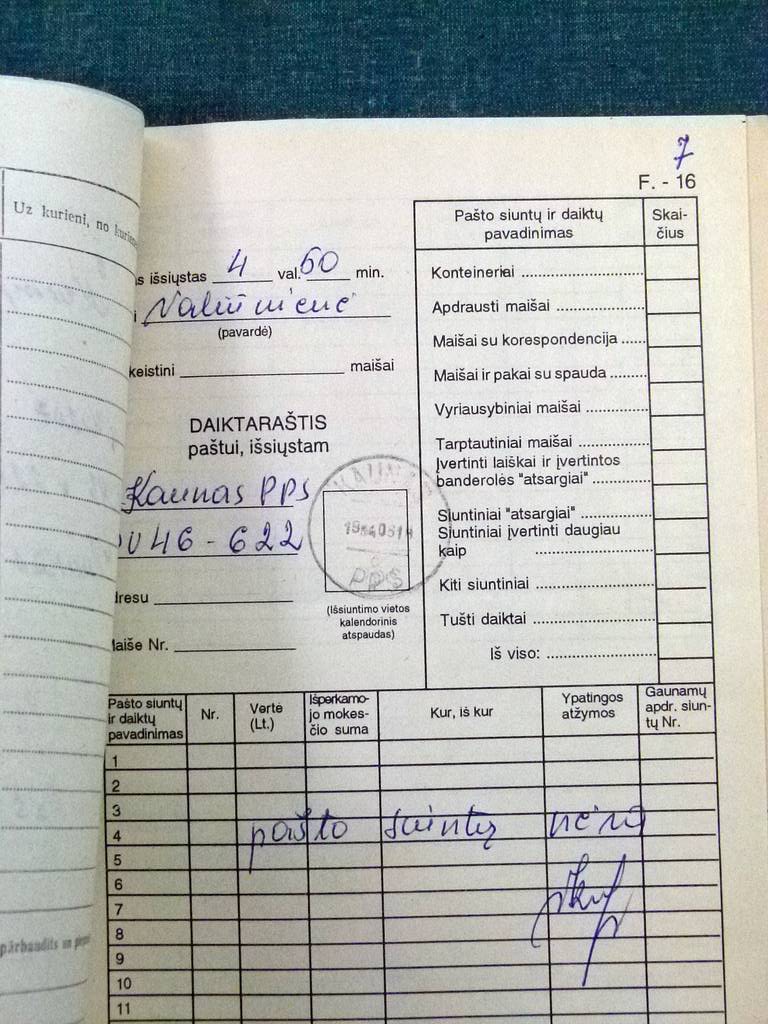 7
F. - 16
Uz kurieni, no
išsiųstas 4 val. 50 min.
(pavardė)
keistini maišai
DAIKTARAŠTIS
paštui, išsiųstam
Kaunas PPS
46 - 622
KAUNAS
PPS
(Išsiuntimo vietos
kalendorinis
atspaudas)
Maiše Nr.
Pašto siuntų ir daiktų
pavadinimas
Skai-
čius
Konteineriai
Apdrausti maišai
Maišai su korespondencija
Maišai ir pakai su spauda
Vyriausybiniai maišai
Tarptautiniai maišai
Įvertinti laiškai ir įvertintos
banderolės "atsargiai"
Siuntiniai "atsargiai"
Siuntiniai įvertinti daugiau
kaip
Kiti siuntiniai
Tušti daiktai
Iš viso:
Pašto siuntų
ir daiktų
pavadinimas
Nr.
Vertė
(Lt.)
Išperkamo-
jo mokes-
čio suma
Kur, iš kur
Ypatingos
atžymos
Gaunamų
apdr. siun-
tų Nr.
1
2
3
4 pašto siuntų nėra
5
6
7
8
9
10
11
pārbaudīts un